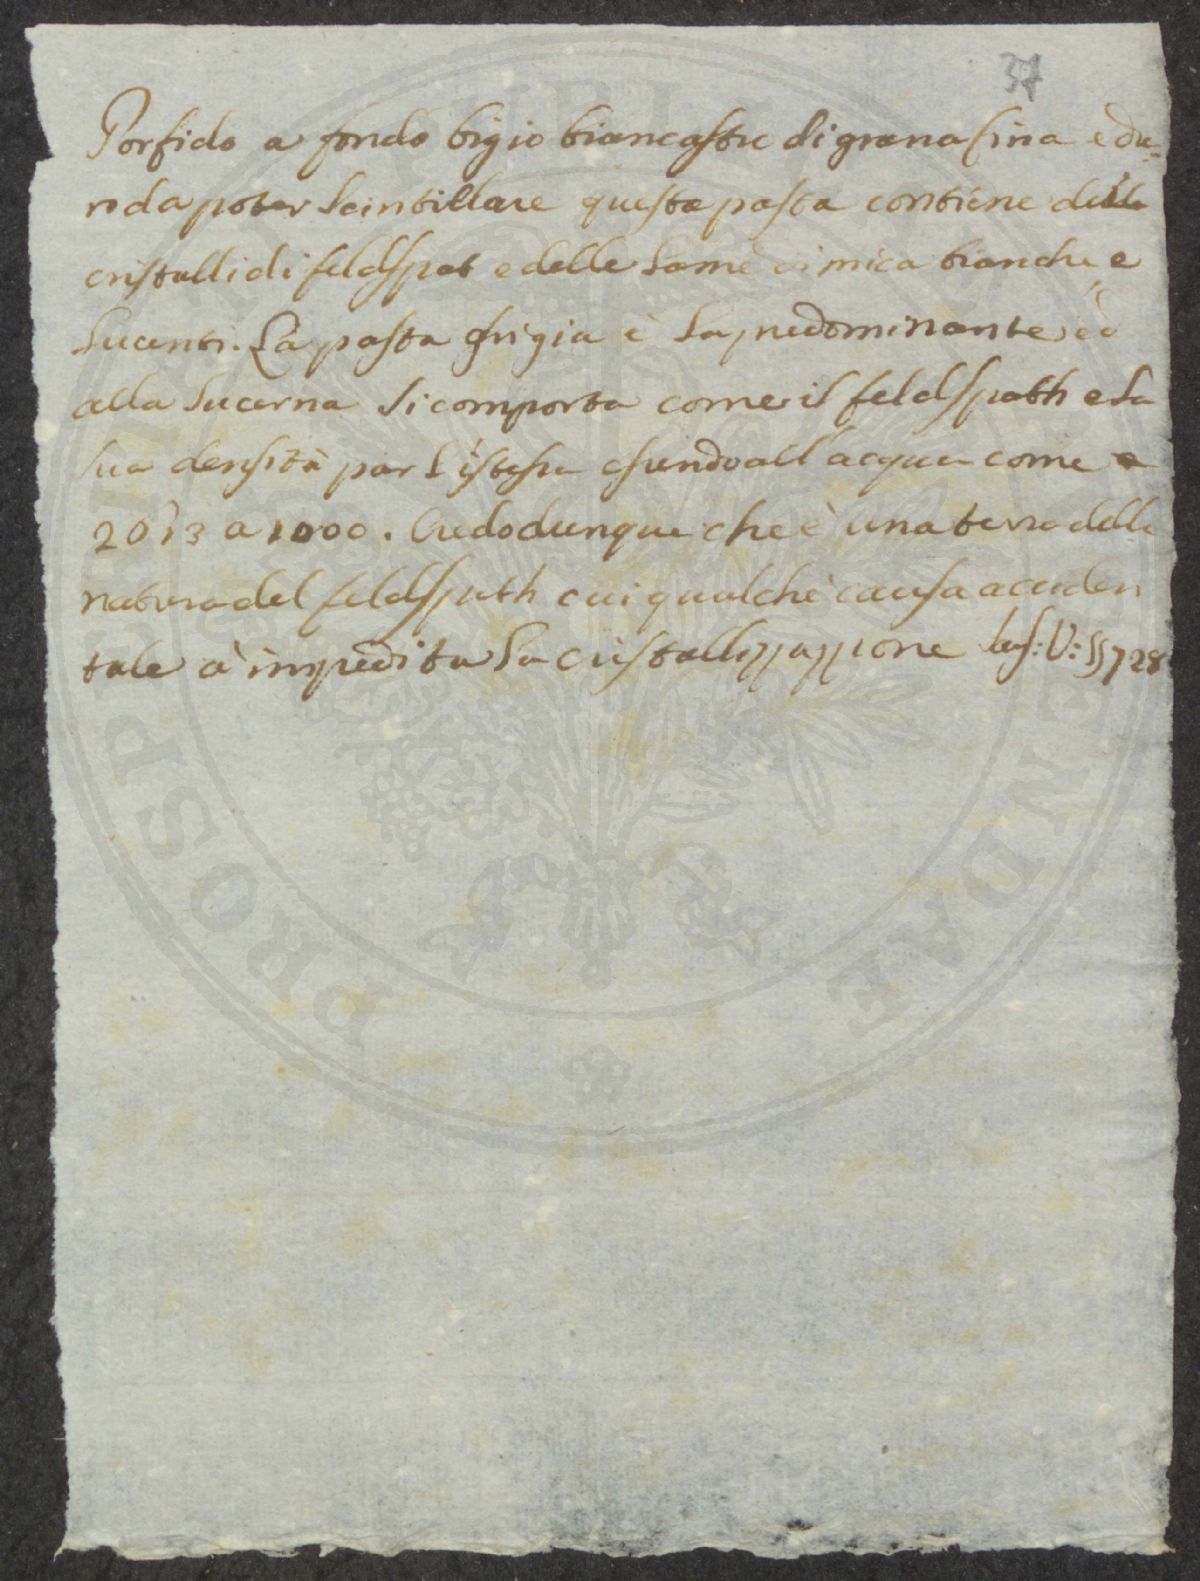 37
Porfido a fondo bigio biancastro di grana fina e du=
ro da poter scintillare questa pasta contiene delli
cristalli di feldspat e delle lame di mica bianche e
lucenti. La pasta grigia è la predominante ed
alla lucerna si comporta come il feldspath e la
sua densità par l'istessa essendo all'acqua come
2613 a 1000. Credo dunque che è una terra della
natura del feldspath cui qualche causa acciden
tale à impedita la cristallizzazzione §728
PROSPERITATI PUBLICAE AUGENDAE